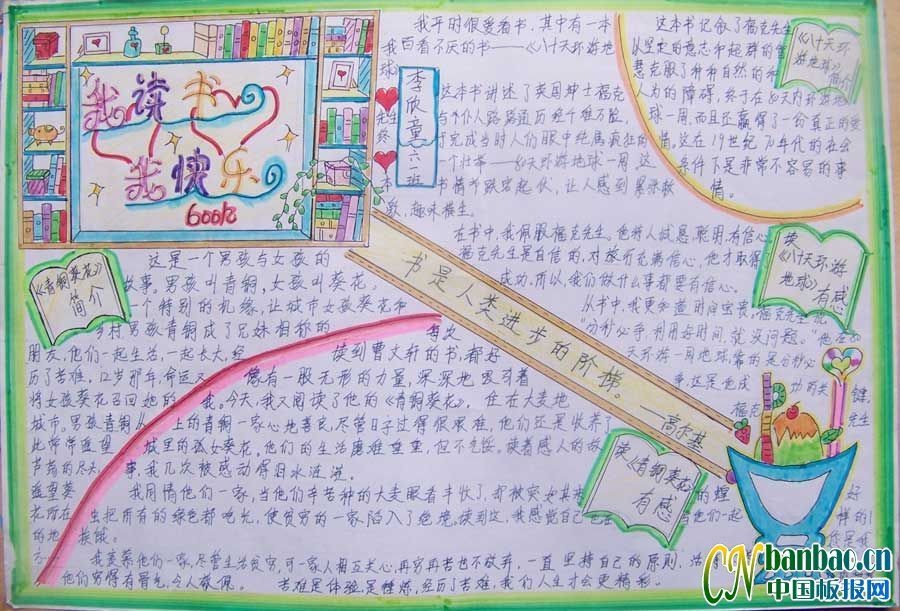 我读书
我快乐
600亿
李欣童
六一班
我平时很爱看书，其中有一本
我百看不厌的书——《八十天环游
地球》
这本书讲述了英国绅士福克
先生与仆人路路通历经千难万险，
终于完成当时人们眼中纯属疯狂的
一个壮举——80天环游地球一周。这
本书情节跌宕起伏，让人感到
趣味横生。
《八十天环
游地球》
简介
这本书记叙了福克先生
以坚定的意志和超群的智
慧克服了种种自然的和
人为的障碍，终于在80天内环游地
球一周，而且还赢得了一份真正的爱
情，这在19世纪70年代的社会
条件下是非常不容易的事
情。
读
《八十天环游
地球》有感
在书中，我佩服福克先生。他待人诚恳，聪明，有信心
福克先生是自信的，对旅行充满信心，他才取得了
成功，所以，我们做什么事都要有信心。
从书中，我更知道时间宝贵，福克先生说
分秒必争，利用好时间，就没问题。
天环游一周地球，靠的是分秒必
争，这是他成功的关键。
福克先生
书是人类进步的阶梯。——高尔基
《青铜葵花》
简介
这是一个男孩与女孩的
故事。男孩叫青铜，女孩叫葵花，
一个特别的机缘，让城市女孩葵花和
乡村男孩青铜成了兄妹相称的
朋友，他们一起生活，一起长大，经
历了苦难，12岁那年，命运又
将女孩葵花召回她的
城市。男孩青铜从
此常常遥望
芦荡的尽头，
遥望葵
花所在
的地
方…
读《青铜葵花》
有感
每次
读到曹文轩的书，都好
像有一股无形的力量，深深地吸引着
我。今天，我又阅读了他的《青铜葵花》，住在大麦地
上的青铜一家心地善良，尽管日子过得很艰难，他们还是收养了
城里的孤女葵花。他们的生活磨难重重，但不气馁。读着感人的故
事，我几次被感动得泪水涟涟。
我同情他们一家，当他们辛苦种的大麦眼看丰收了，却被突如其来的蝗
虫把所有的绿色都吃光，使贫穷的一家陷入了绝境。读到这，我感觉自己也在和他们一起
挨饿。
我羡慕他们一家，尽管生活贫穷，可一家人相互关心，再穷再苦也不放弃，一直坚持自己的原则，
他们穷得有骨气，令人敬佩。
苦难是体验，是锤炼，经历了苦难，我们人生才会更精彩。
CN banbao.cn
中国板报网